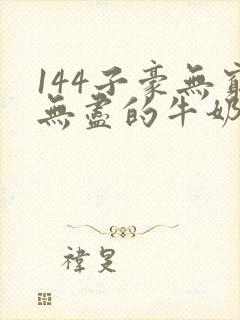 144子豪無窮
無盡的牛奶
禕旻